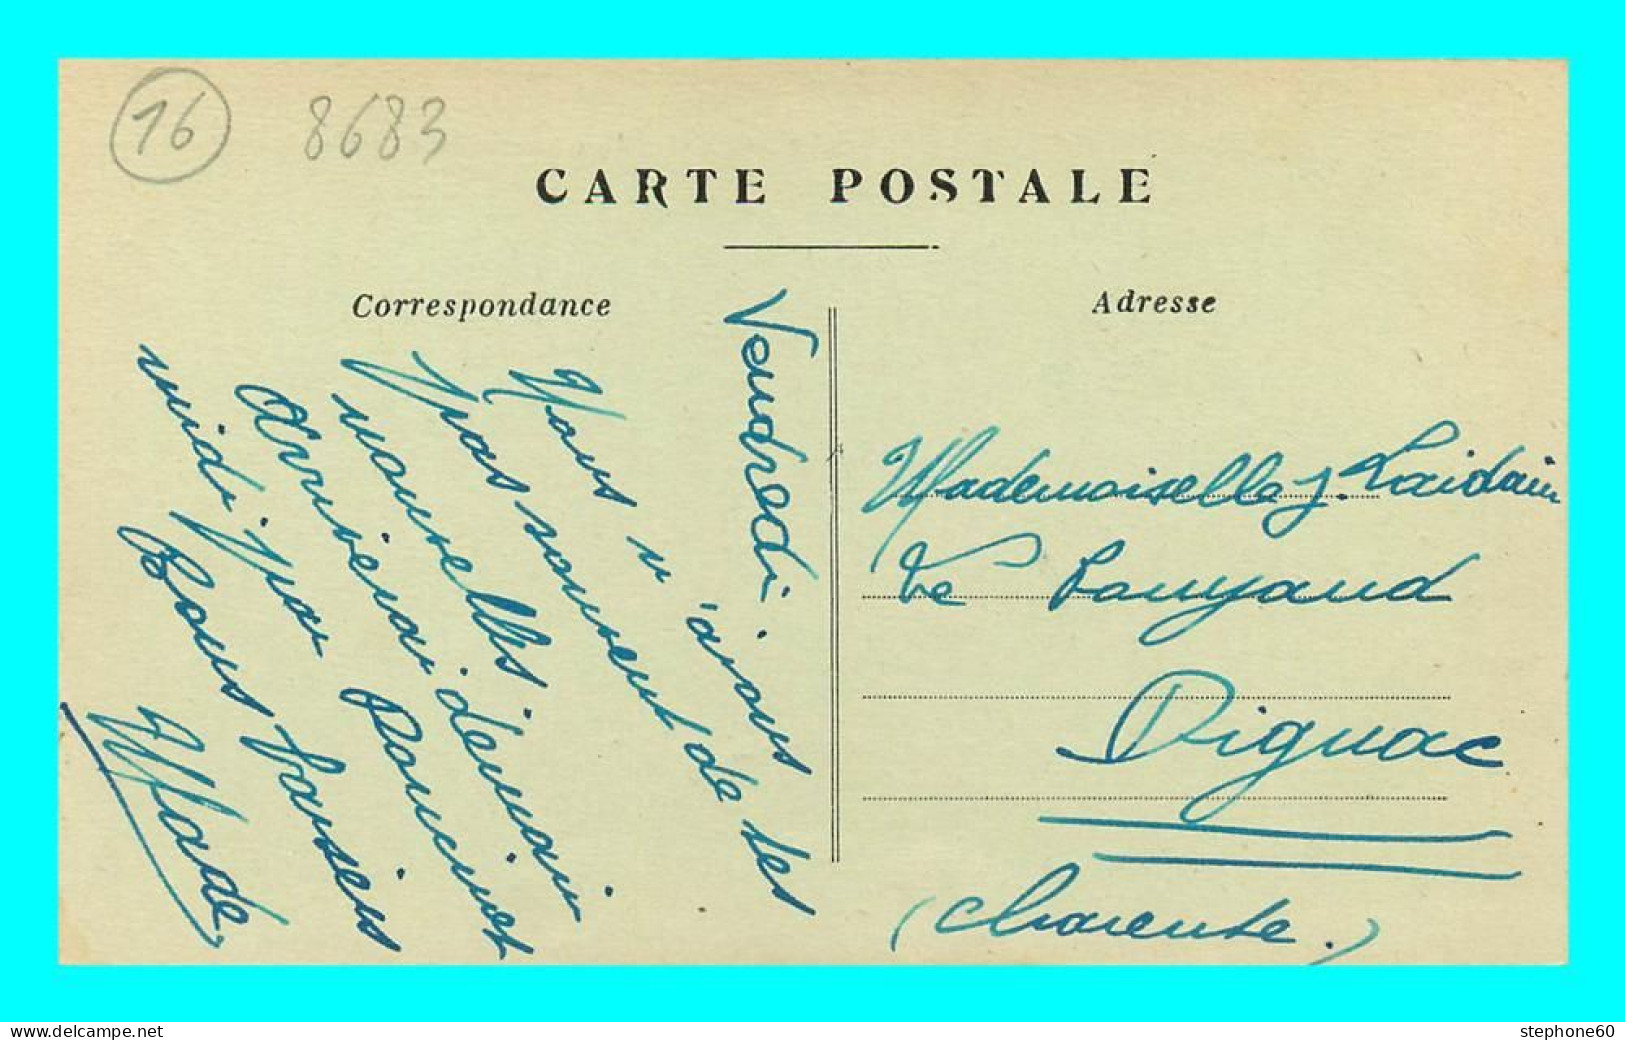 16
8683
CARTE POSTALE
Correspondance
Adresse
Vendredi
Nous n'avons
pas souvent de tes
nouvelles j'
arriverai demain
midi par
Bons baisers
Made
Mademoiselle J.
Le
Dignac
(Charente.)
www.delcampe.net
stephone60